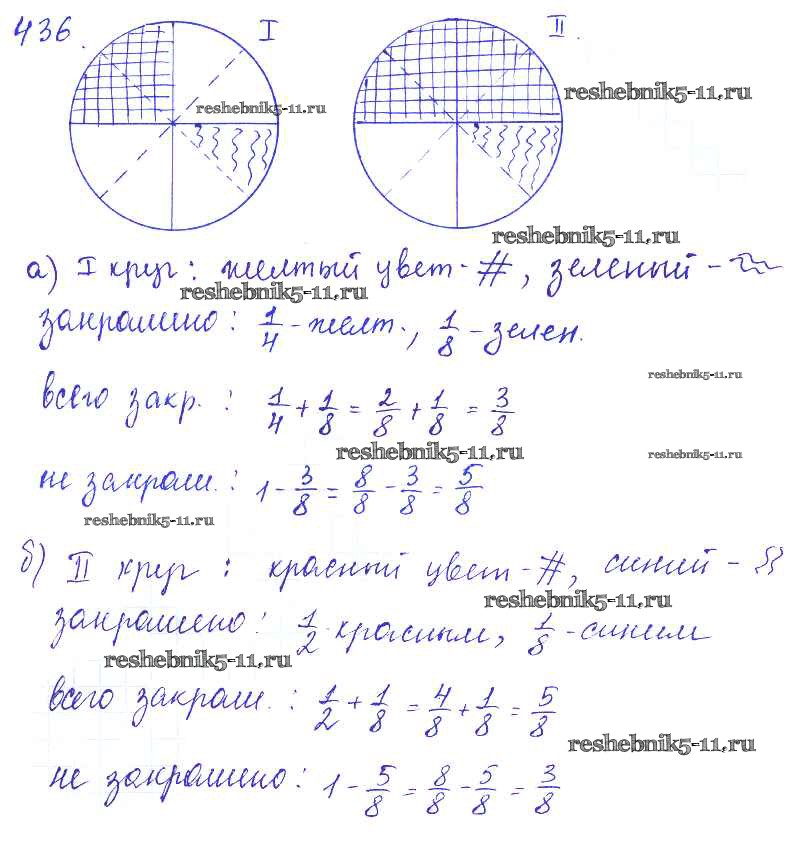 436. I II.
reshebnik5-11.ru
reshebnik5-11.ru
reshebnik5-11.ru
а) I круг: желтый цвет - #, зеленый - ~
reshebnik5-11.ru
закрашено: 1/4 - желт., 1/8 - зелен.
reshebnik5-11.ru
всего закр.: 1/4 + 1/8 = 2/8 + 1/8 = 3/8
reshebnik5-11.ru
reshebnik5-11.ru
не закраш.: 1 - 3/8 = 8/8 - 3/8 = 5/8
reshebnik5-11.ru
б) II круг: красный цвет - #, синий - {}
reshebnik5-11.ru
закрашено: 1/2 - красным, 1/8 - синим
reshebnik5-11.ru
всего закраш.: 1/2 + 1/8 = 4/8 + 1/8 = 5/8
reshebnik5-11.ru
не закрашено: 1 - 5/8 = 8/8 - 5/8 = 3/8